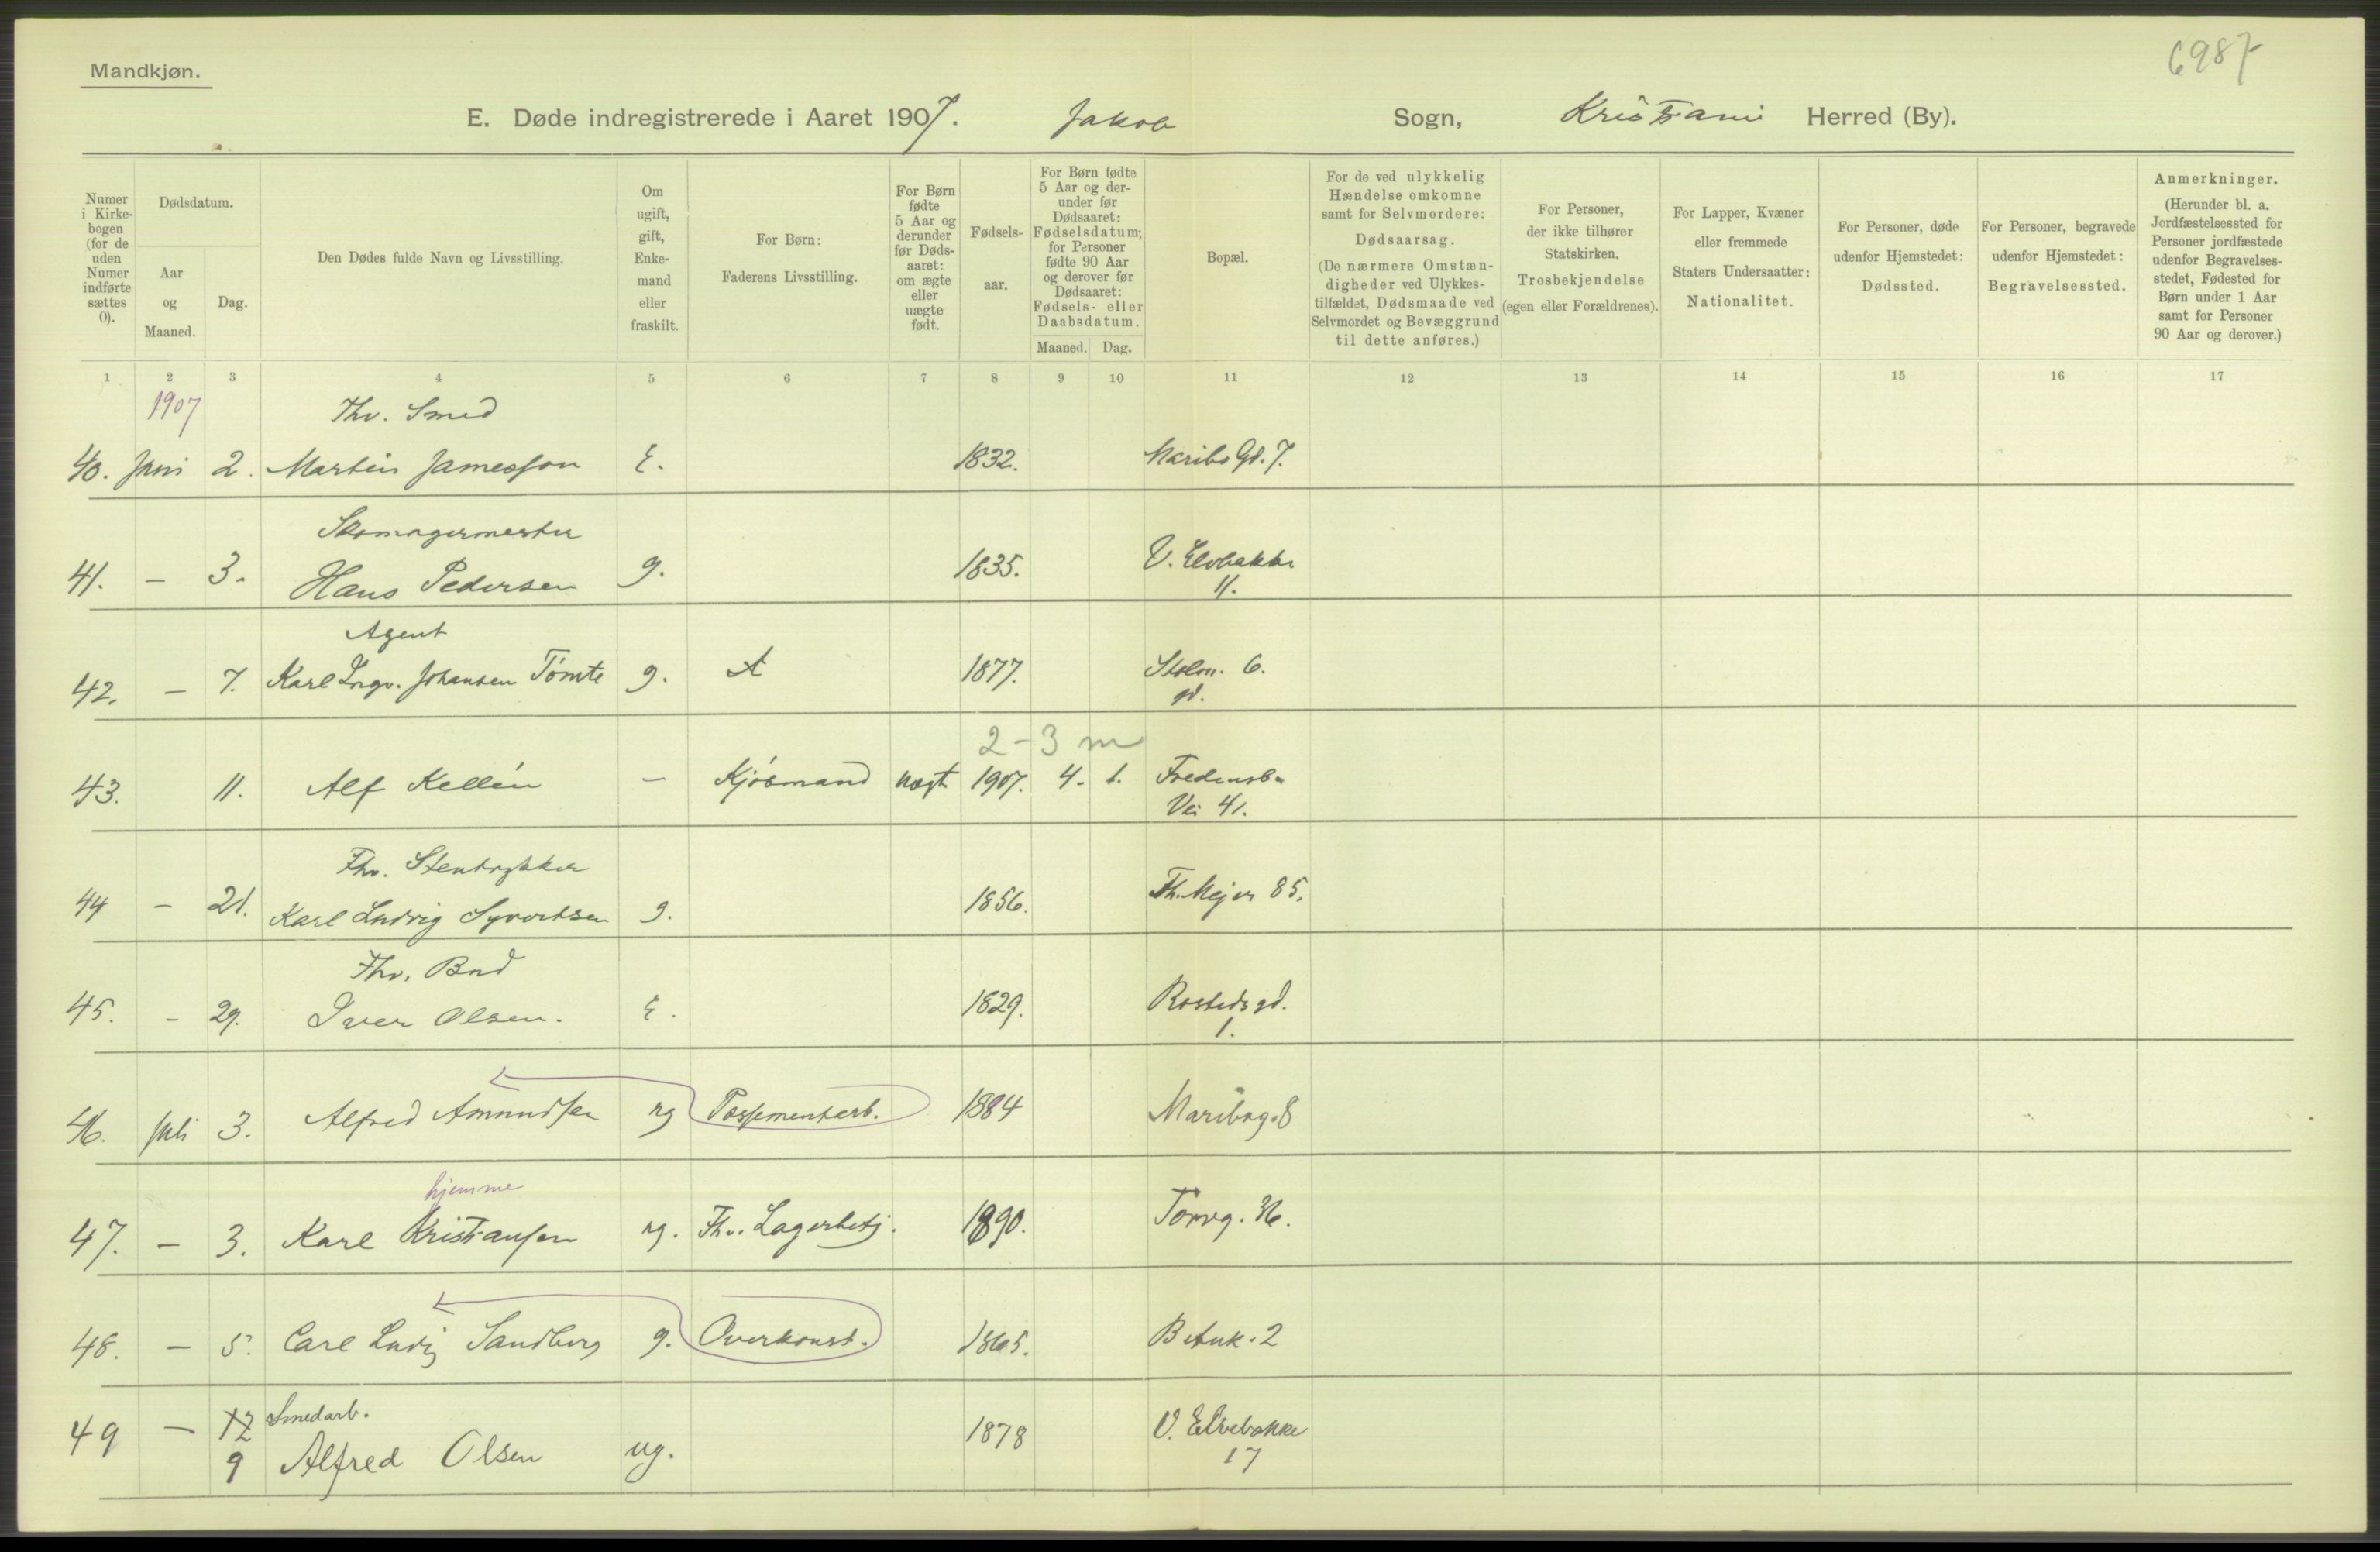 6987
Mandkjøn.
E. Døde indregistrerede i Aaret 1907. Jakob Sogn, Kristiani Herred (By).
Numer i Kirkebogen (for de uden Numer indførte sættes 0).
Dødsdatum.
Aar og Maaned.
Dag.
Den Dødes fulde Navn og Livsstilling.
Om ugift, gift, Enkemand eller fraskilt.
For Børn:
Faderens Livsstilling.
For Børn fødte 5 Aar og derunder før Dødsaaret: om ægte eller uægte født.
Fødselsaar.
For Børn fødte 5 Aar og derunder før Dødsaaret: Fødselsdatum; for Personer fødte 90 Aar og derover før Dødsaaret: Fødsels- eller Daabsdatum.
Maaned. Dag.
Bopæl.
For de ved ulykkelig Hændelse omkomne samt for Selvmordere:
Dødsaarsag.
(De nærmere Omstændigheder ved Ulykkestilfældet, Dødsmaade ved Selvmordet og Bevæggrund til dette anføres.)
For Personer, der ikke tilhører Statskirken,
Trosbekjendelse
(egen eller Forældrenes).
For Lapper, Kvæner eller fremmede Staters Undersaatter:
Nationalitet.
For Personer, døde udenfor Hjemstedet:
Dødssted.
For Personer, begravede udenfor Hjemstedet:
Begravelsessted.
Anmerkninger.
(Herunder bl. a. Jordfæstelsessted for Personer jordfæstede udenfor Begravelsesstedet, Fødested for Børn under 1 Aar samt for Personer 90 Aar og derover.)
1 2 3 4 5 6 7 8 9 10 11 12 13 14 15 16 17
1907 Fhv. Smed
40. Juni 2. Martin Jamesson E. 1832. Maribo Gd. 7.
Skomagermester
41. – 3. Hans Pedersen g. 1835. V. Elvbakke
11.
Agent
42. – 7. Karl Ingv. Johansen Tømte g. 1877. Stolm. 6.
gd.
2 – 3 m
43. 11. Alf Kellén – Kjøbmand uægt 1907. 4. 1. Fredensb.
Vei 41.
Fhv. Stentrykker
44 – 21. Karl Ludvig Syvertsen g. 1856. Th. Mejer 85.
Fhv. Bud
45. – 29. Iver Olsen. E. 1829. Rostedsgd.
1.
46. Juli 3. Alfred Amundsen ug Possementarb. 1884 Maribog. 8
hjemme
47. – 3. Karl Kristiansen ug. Fhv. Lagerbetj. 1890. Torvg. 36.
48. – 5. Carl Ludvig Sandberg g. Overkonst. 1865. Betuk. 2
Smedarb.
49 – 12 9 Alfred Olsen ug. 1878 V. Elvebakke
17